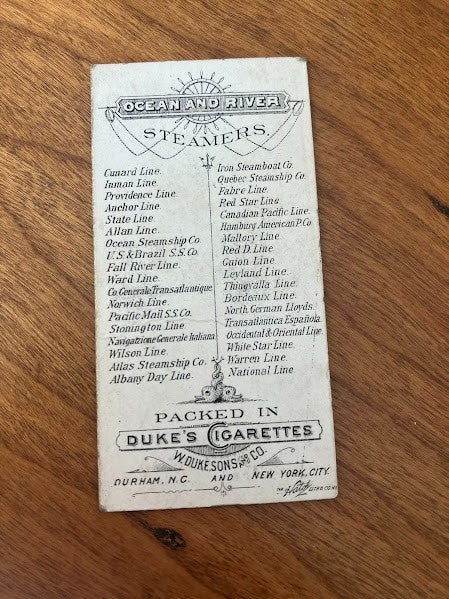 OCEAN AND RIVER
STEAMERS.
Cunard Line.
Inman Line.
Providence Line.
Anchor Line.
State Line
Allan Line.
Ocean Steamship Co.
U.S.& Brazil S.S.Co.
Fall River Line.
Ward Line.
Co. Generale Transatlantique.
Norwich Line.
Pacific Mail S.S. Co.
Stonington Line
Navigatzione Generale Italiana
Wilson Line.
Atlas Steamship Co.
Albany Day Line.
Iron Steamboat Co.
Quebec Steamship Co.
Fabre Line.
Red Star Line
Canadian Pacific Line.
Hamburg American P. Co.
Mallory Line.
Red D. Line.
Guion Line.
Leyland Line.
Thingvalla Line.
Bordeaux Line.
North German Lloyds.
Transatlantica Española.
Occidental & Oriental Line.
White Star Line.
Warren Line.
National Line
PACKED IN
DUKE'S CIGARETTES
W. DUKE SONS AND CO.
DURHAM, N.C. AND NEW YORK, CITY.
THE LITHO CO. N.Y.